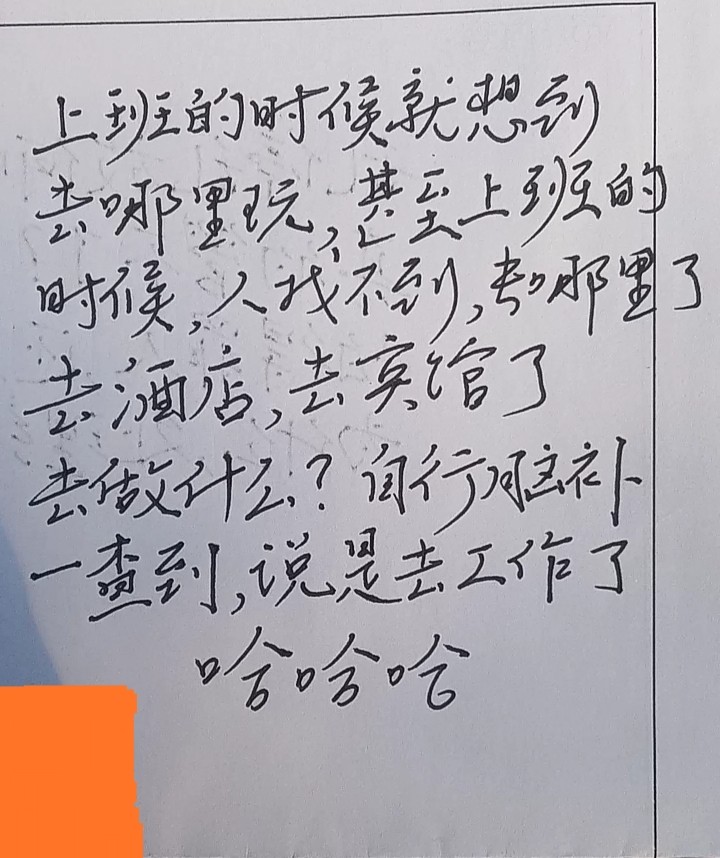 上班的时候就想到
去哪里玩,甚至上班的
时候,人找不到,去哪里了
去酒店,去宾馆了
去做什么?自行脑补
一查到,说是去工作了
哈哈哈